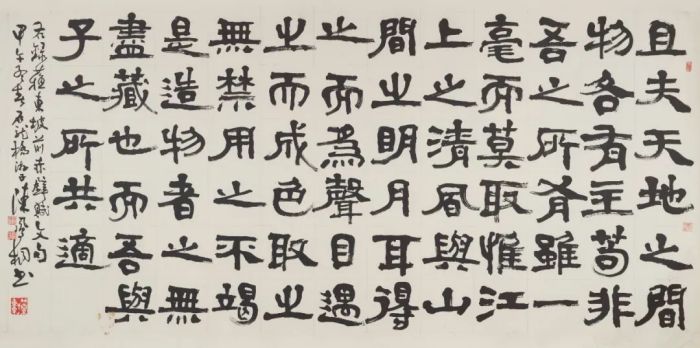 且夫天地之間
物各有主苟非
吾之所有雖一
毫而莫取惟江
上之清風與山
間之明月耳得
之而爲聲目遇
之而成色取之
無禁用之不竭
是造物者之無
盡藏也而吾與
子之所共適
右錄蘇東坡前赤壁賦文句
甲午春石龍橋陳書